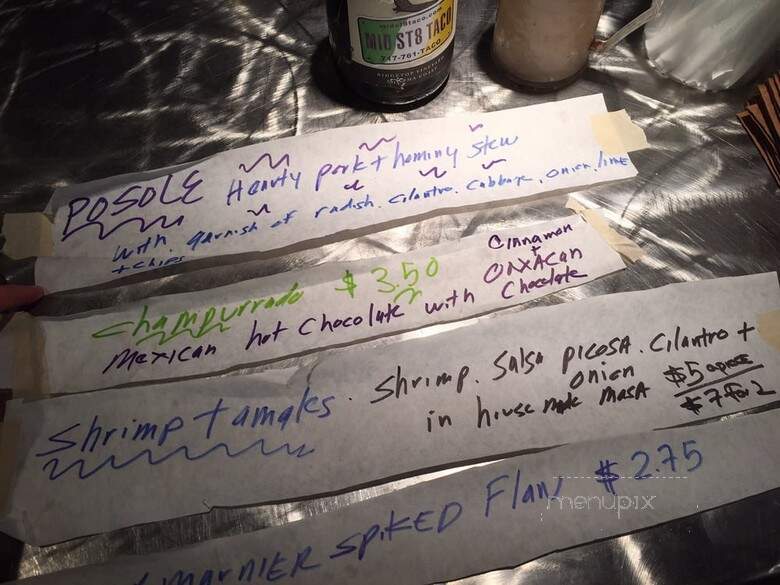 MID ST8 TACO
717-761-TACO
POSOLE Hearty pork + hominy stew
with garnish of radish. cilantro. cabbage, onion, lime
+ chips
champurrado $ 3.50 Cinnamon
+ OAXACAN
Mexican hot chocolate with Chocolate
shrimp tamales. shrimp. salsa picosa. cilantro +
onion
in house made masa $5 apiece
$7 for 2
marnier spiked Flan $ 2.75
menupix